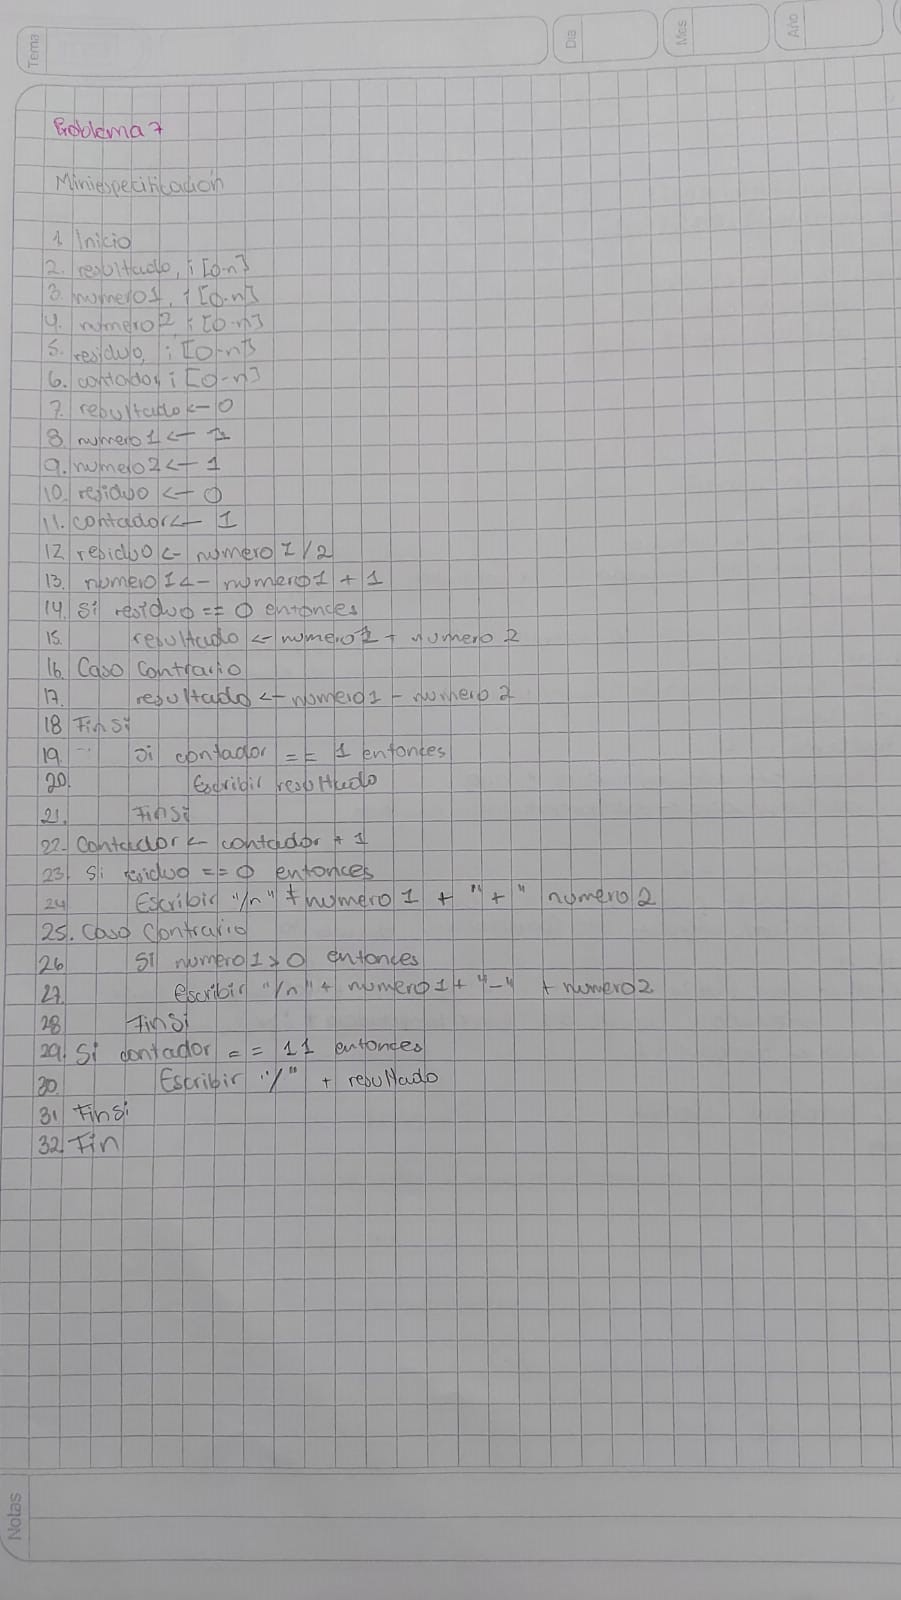 Tema
Dia
Mes
Año
Problema 7
Miniespecificación
1. Inicio
2. resultado, i [0-n]
3. numero1, i [0-n]
4. numero2, i [0-n]
5. residuo, i [0-n]
6. contador, i [0-n]
7. resultado <- 0
8. numero1 <- 1
9. numero2 <- 1
10. residuo <- 0
11. contador <- 1
12. residuo <- numero1/2
13. numero1 <- numero1 + 1
14. Si residuo == 0 entonces
15. resultado <- numero1 + numero2
16. Caso Contrario
17. resultado <- numero1 - numero2
18. Finsi
19. Si contador == 1 entonces
20. Escribir resultado
21. Finsi
22. Contador <- contador + 1
23. Si residuo == 0 entonces
24 Escribir "/n" + numero1 + "+" numero2
25. Caso Contrario
26 Si numero1 > 0 entonces
27. escribir "/n" + numero1 + "-" + numero2
28 Finsi
29. Si contador == 11 entonces
30. Escribir "/" + resultado
31 Finsi
32. Fin
Notas